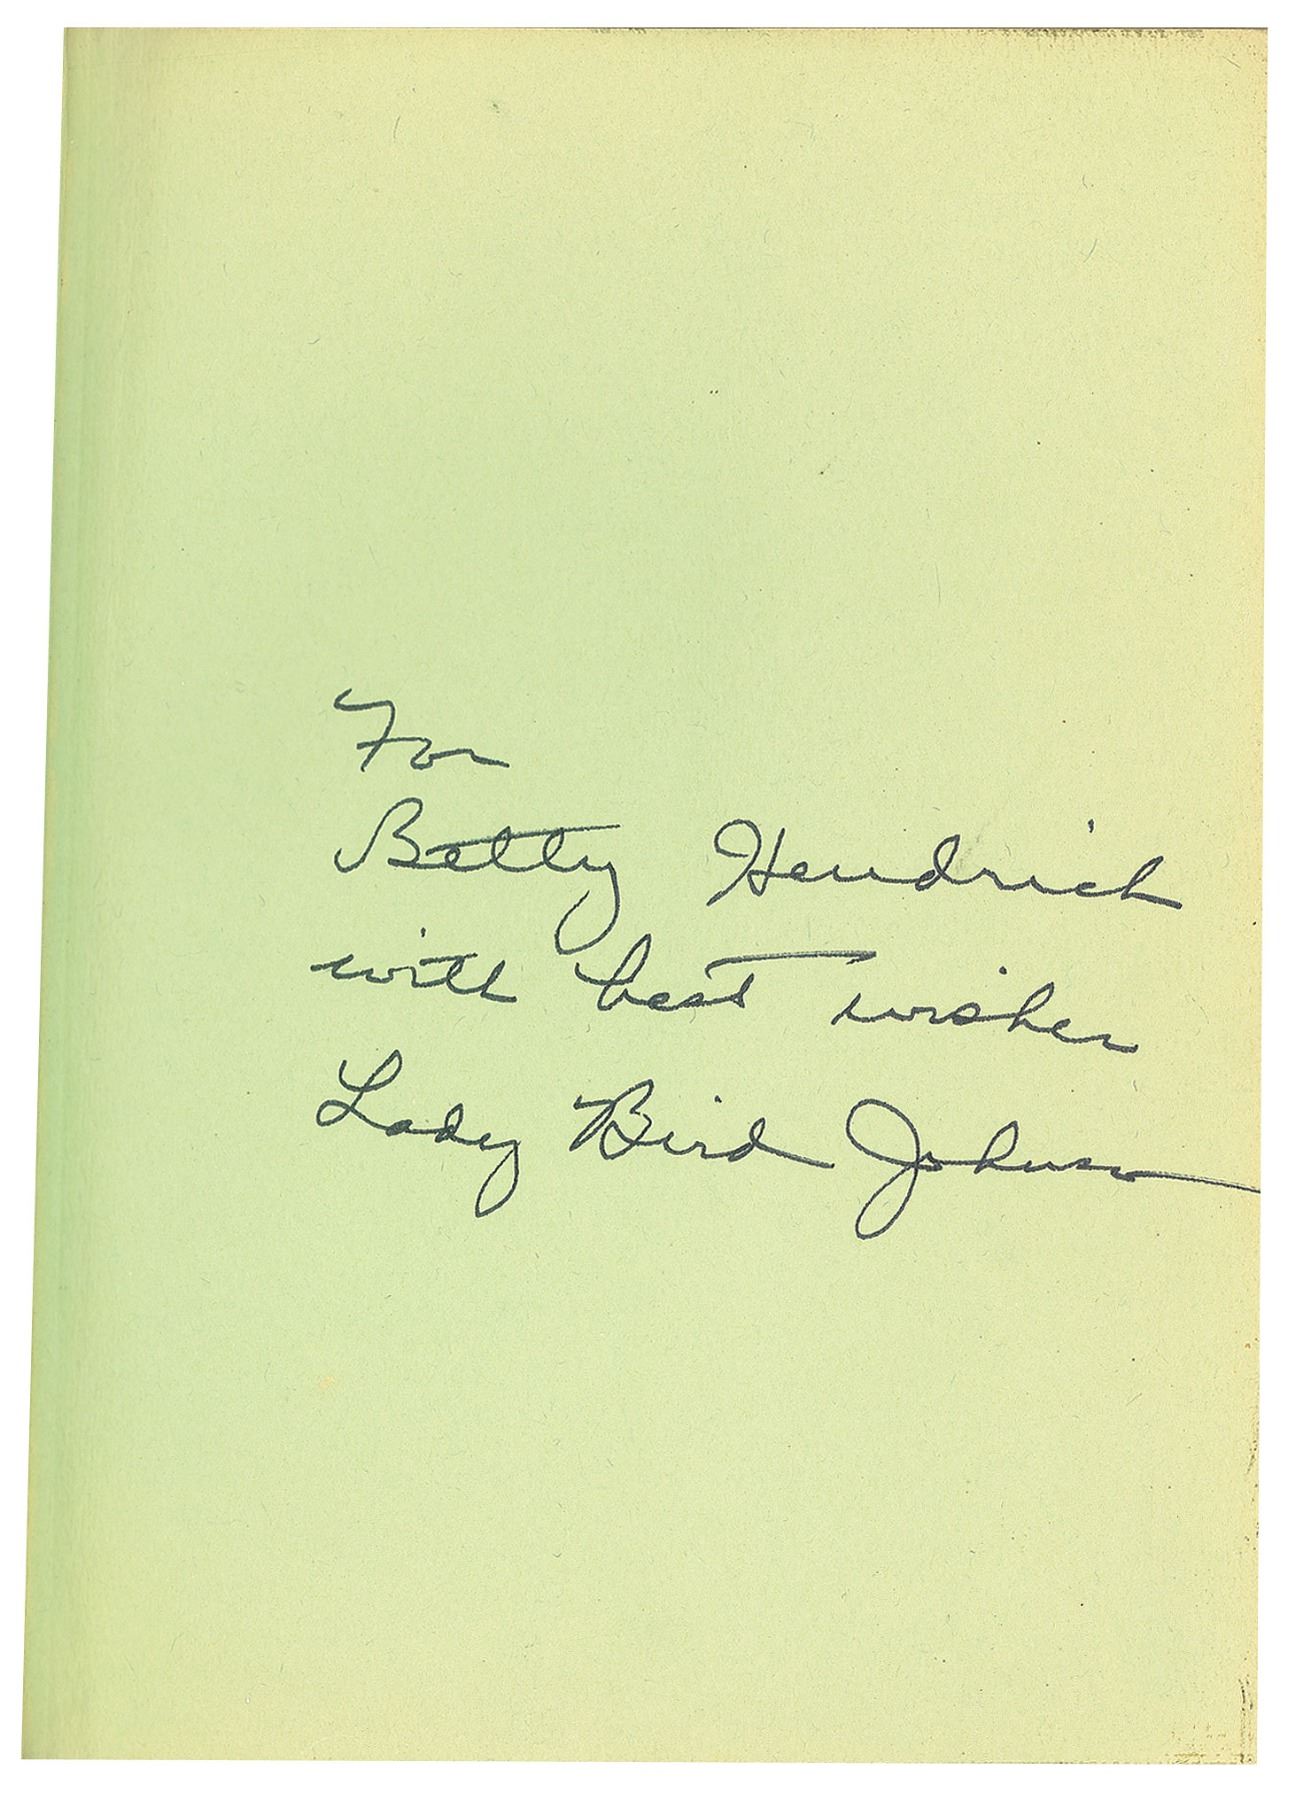 For
Betty Hendrich
with best wishes
Lady Bird Johnson